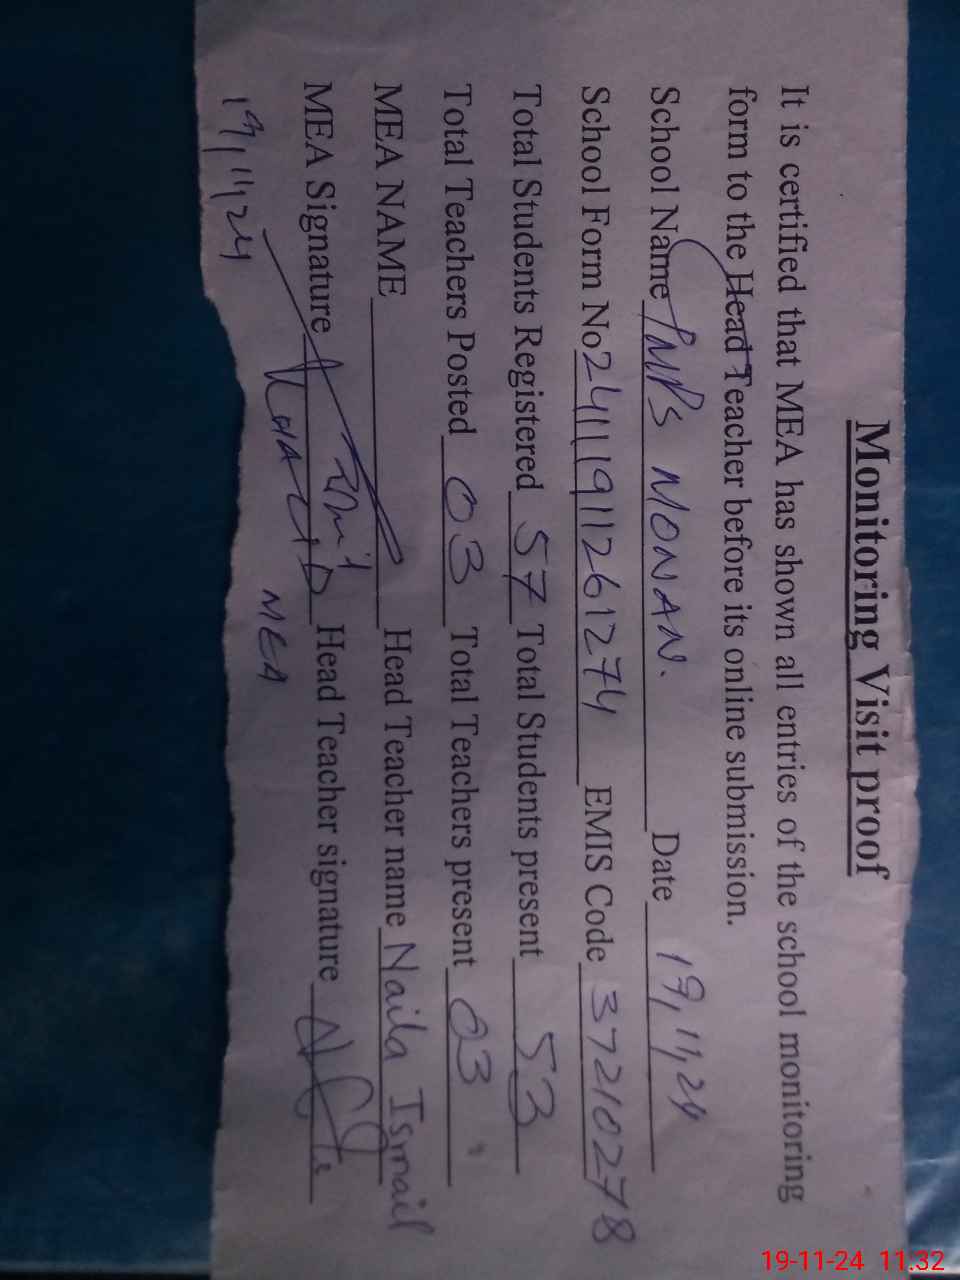 Monitoring Visit proof
It is certified that MEA has shown all entries of the school monitoring
form to the Head Teacher before its online submission.
School Name MONAN. Date 19,11,24
School Form No 24111911261274 EMIS Code 37210278
Total Students Registered 57 Total Students present 53
Total Teachers Posted 03 Total Teachers present 03
MEA NAME Head Teacher name Naila Ismail
MEA Signature Head Teacher signature
MEA
19,11,24
19-11-24 11:32